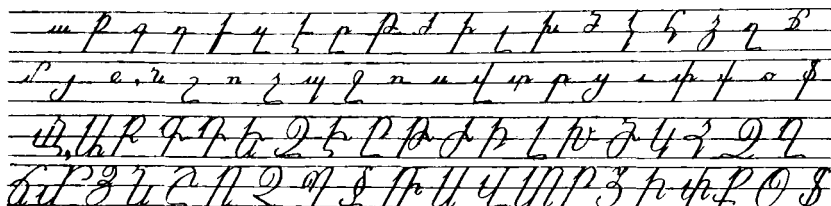 ա բ գ դ ե զ է ը թ ժ ի լ խ ծ կ հ ձ ղ ճ
մ յ ն շ ո չ պ ջ ռ ս վ տ ր ց ւ փ ք օ ֆ
Ա Բ Գ Դ Ե Զ Է Ը Թ Ժ Ի Լ Խ Ծ Կ Հ Ձ Ղ
Ճ Մ Յ Ն Շ Ո Չ Պ Ջ Ռ Ս Վ Տ Ր Ց Ւ Փ Ք Օ Ֆ